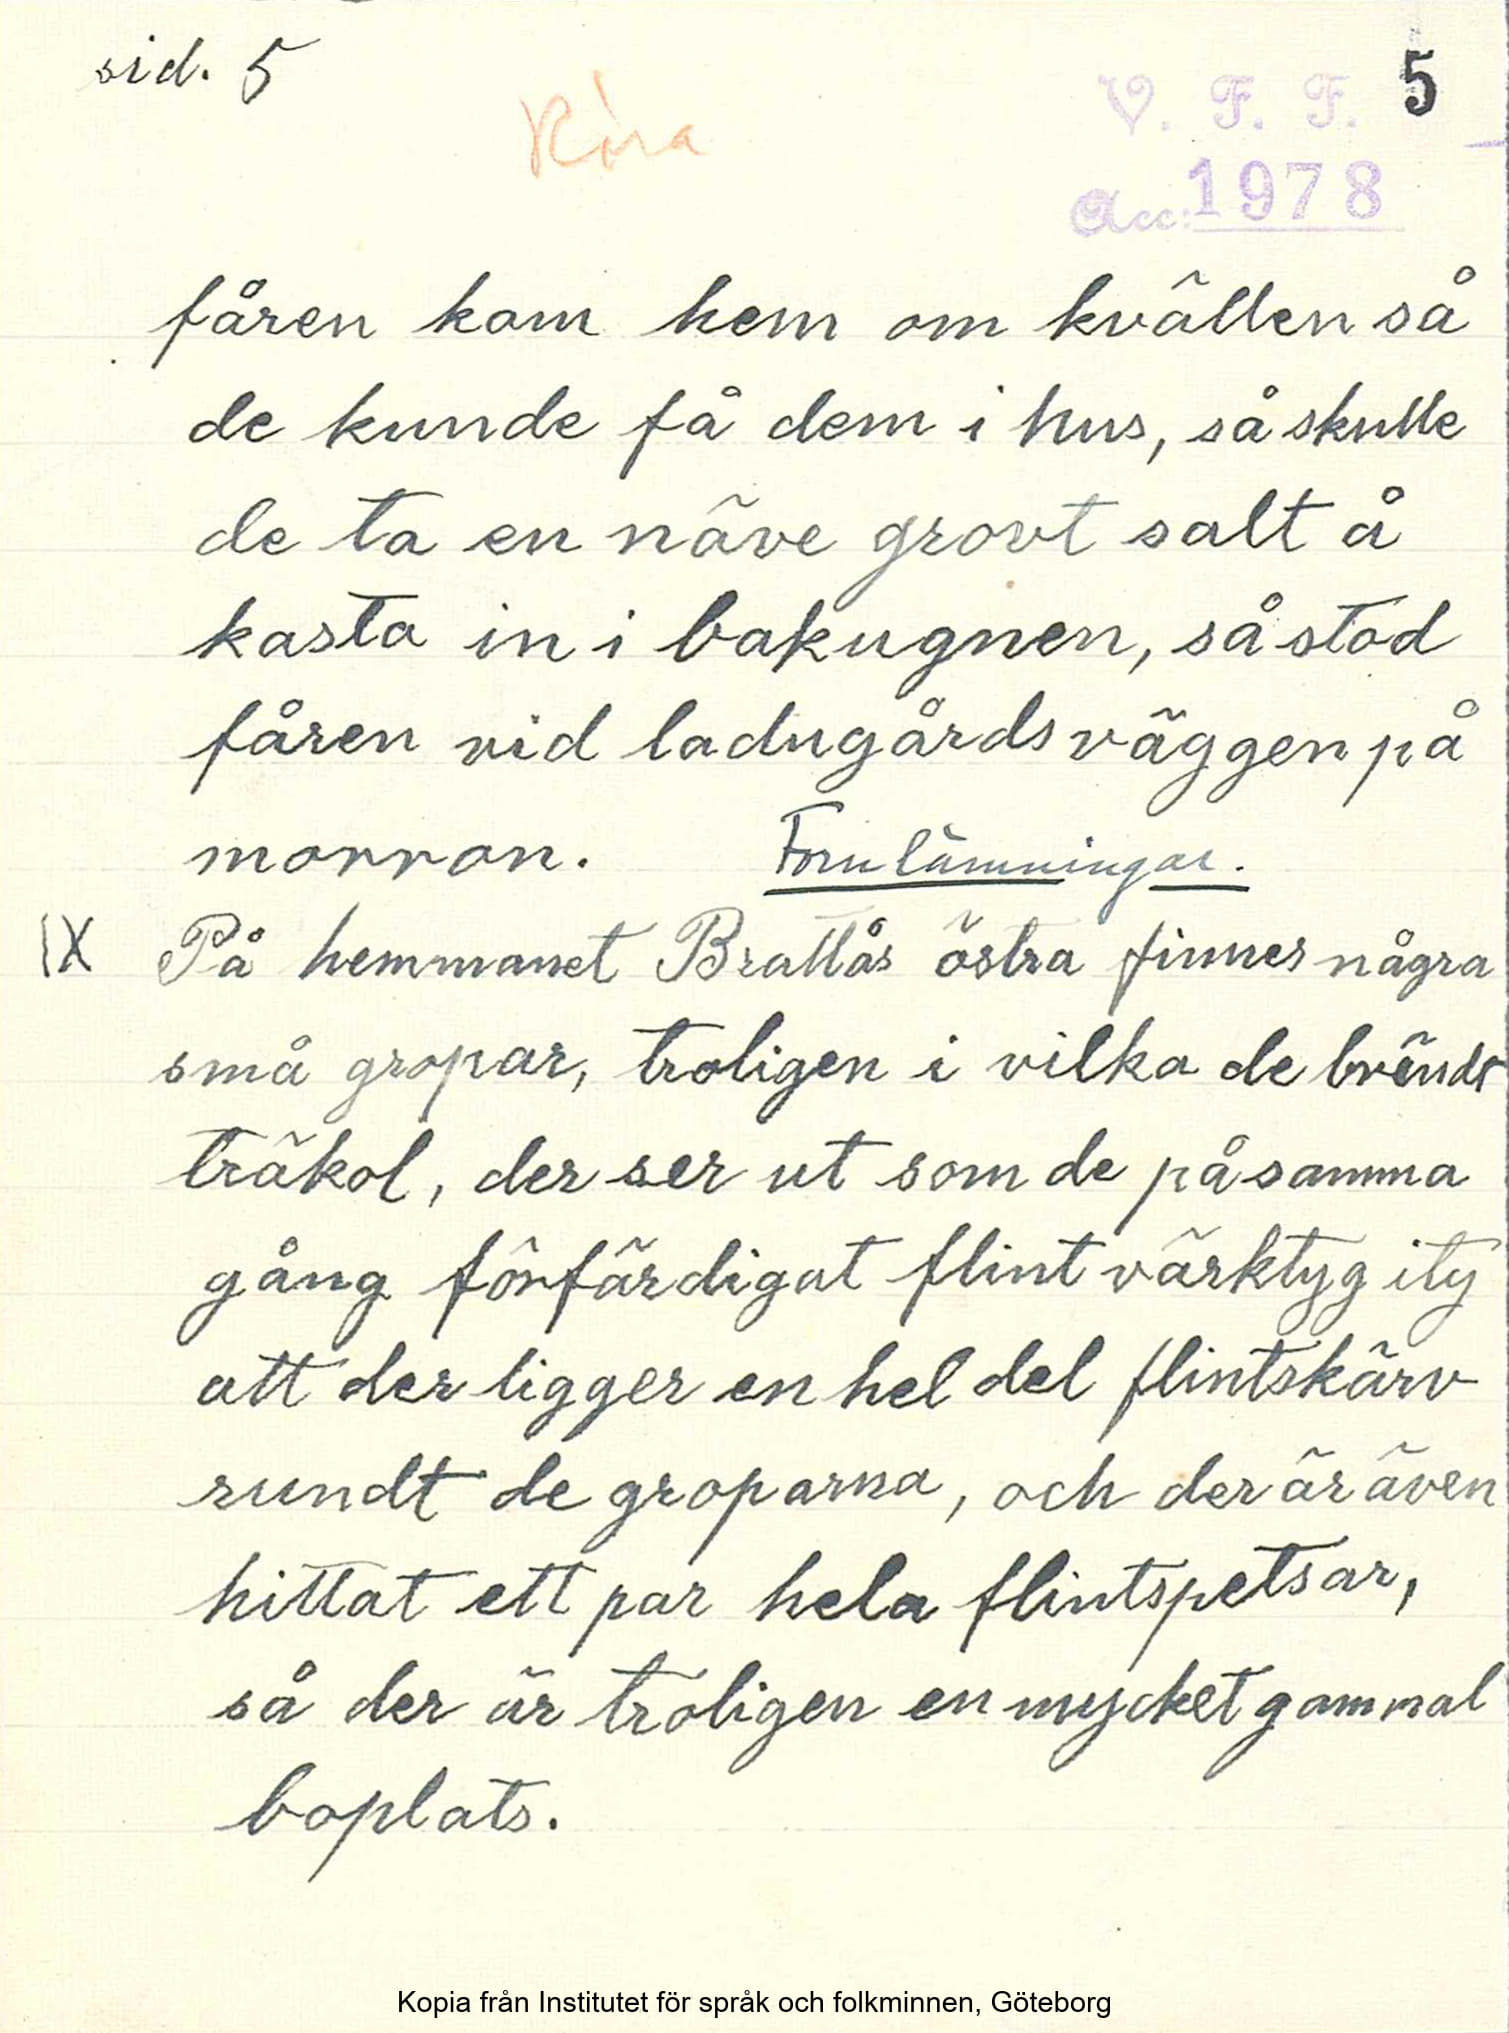 sid. 5
5
V. F. F.
Acc: 1978
fåren kom hem om kvällen så
de kunde få dem i hus, så skulle
de ta en näve grovt salt å
kasta in i bakugnen, så stod
fåren vid ladugårdsväggen på
morron.
Fornlämningar.
IX På hemmanet Brattås östra finnes några
små gropar, troligen i vilka de brändt
träkol, der ser ut som de på samma
gång förfärdigat flint värktyg ity
att der ligger en hel del flintskärv
rundt de groparna, och der är även
hittat ett par hela flintspetsar,
så der är troligen en mycket gammal
boplats.
Kopia från Institutet för språk och folkminnen, Göteborg